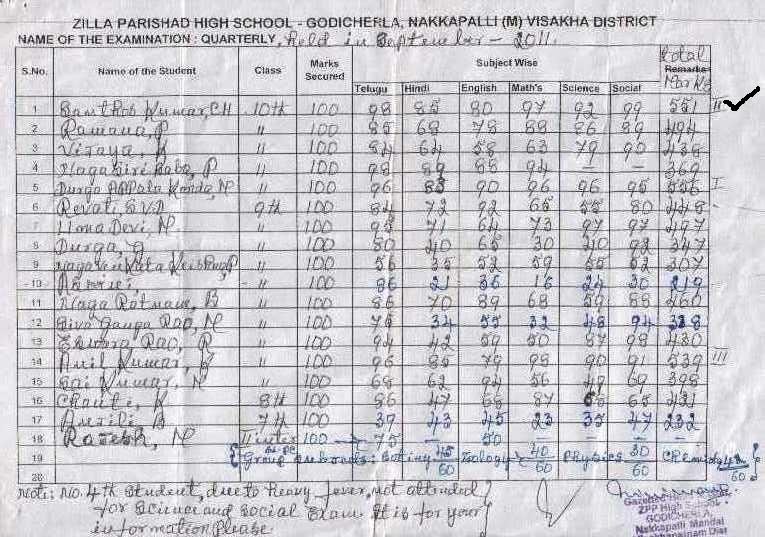 ZILLA PARISHAD HIGH SCHOOL - GODICHERLA, NAKKAPALLI (M) VISAKHA DISTRICT
NAME OF THE EXAMINATION : QUARTERLY, held in September - 2011.
S.No. Name of the Student Class Marks Secured Subject Wise Total Remarks Marks
Telugu Hindi English Math's Science Social
1 Santhosh Kumar, CH 10th 100 98 85 80 97 92 99 551 II
2 Ramana, P " 100 85 68 78 88 86 89 494
3 Vijaya, K " 100 84 64 58 63 79 90 438
4 Nagagiri Babu, P " 100 98 89 88 94 - - 369
5 Durga Appala Konda, N " 100 96 83 90 96 96 95 556 I
6 Revati S.V.D 9th 100 84 72 92 65 55 80 448
7 Uma Devi, N. " 100 95 71 64 73 97 97 497
8 Durga, G " 100 80 40 65 30 40 92 347
9 P " 100 56 35 52 59 55 52 307
10 " 100 86 21 36 16 24 30 219
11 Naga Ratnam, B " 100 86 70 89 68 59 88 460
12 Siva Ganga Rao, N " 100 75 34 55 32 48 94 338
13 Eswara Rao, R " 100 94 42 59 50 87 98 430
14 Anil Kumar, G " 100 96 85 79 98 90 91 539 III
15 Sai Kumar, N " 100 68 62 94 56 49 69 398
16 K 8th 100 86 47 66 87 65 431
17 Anjili, B 7th 100 39 43 45 23 35 47 232
18 Rajesh, N II inter 100 → 75 - 50 - - -
19 Bi.P.C Group : Botiny 45/60 Zoology 40/60 Physics 30/60 /60
20
Note: No. 4th Student, due to heavy fever, not attended
for science and social Exam. It is for your
information please.
ZPP High School
GODICHERLA,
Nakkapalli Mandal